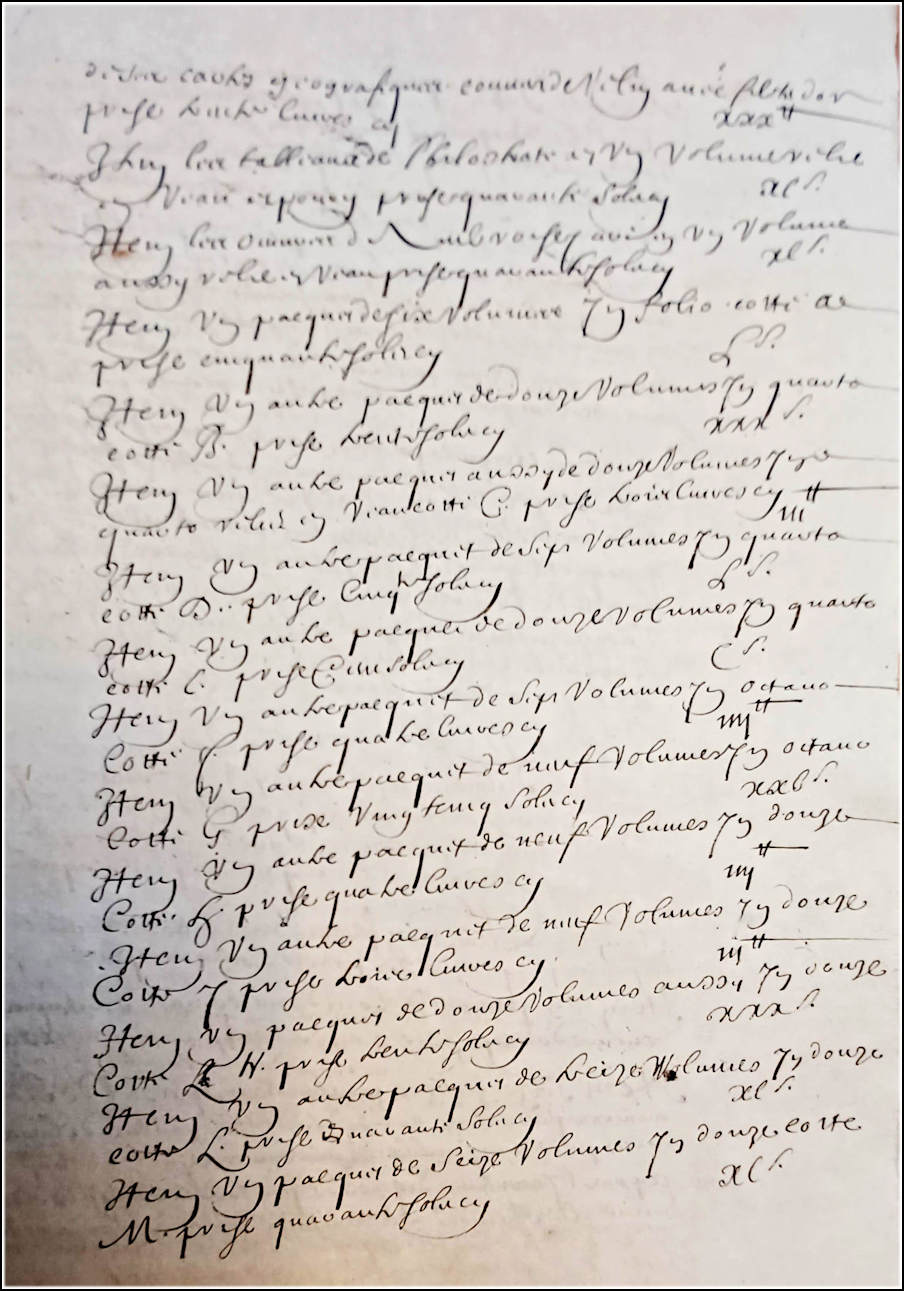 cartes geografiques couvert de velin avec filetz d'or
prisé trente livres cy xxx ₶
Item les tableaux de Philostrate en un volume relié
en veau prisé quarante solz cy xl s.
Item les œuvres d en un volume
aussy relié en veau prisé quarante solz cy xl s.
Item un pacquet de six volumes in folio cotté A
prisé cinquante solz cy L s.
Item un autre pacquet de douze volumes in quarto
cotté B. prisé trente solz cy xxx s.
Item un autre pacquet aussy de douze volumes in
quarto reliez en veau cotté C. prisé trois livres cy iii ₶
Item un autre pacquet de sept volumes in quarto
cotté D. prisé cinqte solz cy L s.
Item un autre pacquet de douze volumes in quarto
cotté E. prisé cent solz cy C s.
Item un autre pacquet de sept volumes in octavo
cotté F. prisé quatre livres cy iiii ₶
Item un autre pacquet de neuf volumes in octavo
cotté G prisé vingt cinq solz cy xxv s.
Item un autre pacquet de neuf volumes in douze
cotté H. prisé quatre livres cy iiii ₶
Item un autre pacquet de neuf volumes in douze
cotté J prisé trois livres cy iii ₶
Item un pacquet de douze volumes aussy in douze
cotté K. prisé trente solz cy xxx s.
Item un autre pacquet de treize volumes in douze
cotté L. prisé quarante solz cy xl s.
Item un pacquet de seize volumes in douze cotté
M. prisé quarante solz cy xl s.